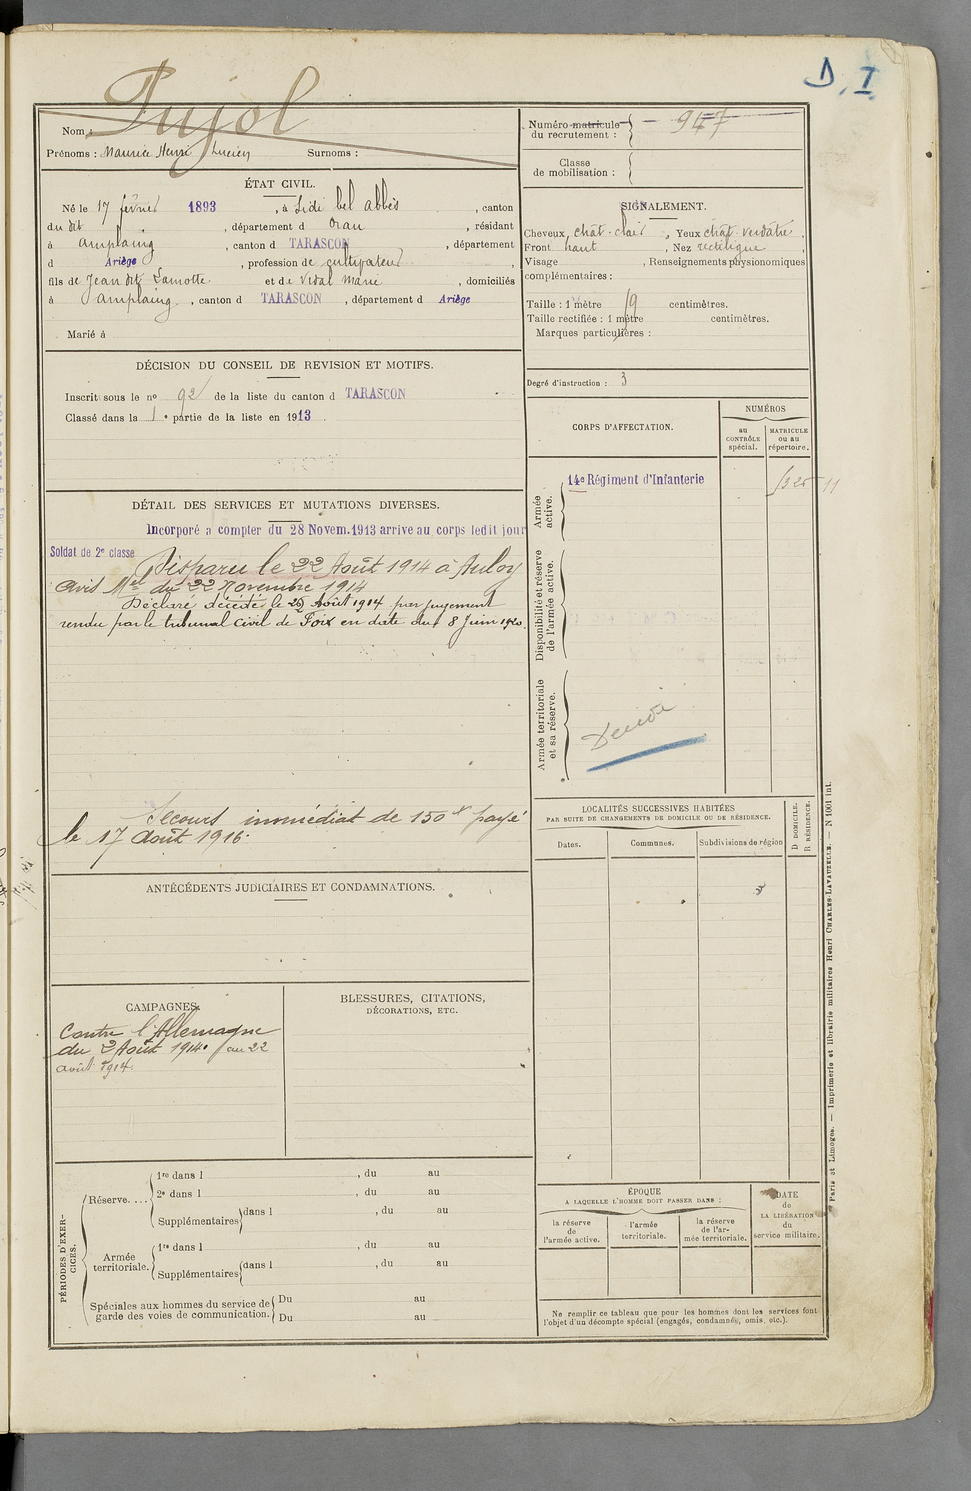 D. I
Nom : Pujol
Prénoms : Maurice Henri Lucien Surnoms :
Numéro matricule du recrutement : 947
Classe de mobilisation :
ÉTAT CIVIL.
Né le 17 février 1893, à Sidi bel abbès, canton
du dit, département d Oran, résidant
à Amplaing, canton d TARASCON, département
d Ariège, profession de cultivateur,
fils de Jean dit Lamotte et de Vidal Marie, domiciliés
à Amplaing, canton d TARASCON, département d Ariège
Marié à
SIGNALEMENT.
Cheveux chât-clair, Yeux chât-verdatre,
Front haut, Nez rectiligne,
Visage , Renseignements physionomiques
complémentaires :
Taille : 1 mètre centimètres.
Taille rectifiée : 1 mètre centimètres.
Marques particulières :
Degré d'instruction : 3
DÉCISION DU CONSEIL DE REVISION ET MOTIFS.
Inscrit sous le no 92 de la liste du canton d TARASCON
Classé dans la 1e partie de la liste en 1913.
CORPS D'AFFECTATION.
NUMÉROS
au CONTRÔLE spécial.
MATRICULE ou au répertoire.
Armée active.
14e Régiment d'Infanterie
Disponibilité et réserve de l'armée active.
Armée territoriale et sa réserve.
DÉTAIL DES SERVICES ET MUTATIONS DIVERSES.
Incorporé a compter du 28 Novem. 1913 arrive au corps ledit jour
Soldat de 2e classe
Disparu le 22 Août 1914 à Auloy
avis Mel du 22 Novembre 1914
Déclaré décédé le 22 Août 1914 par jugement
rendu par le tribunal Civil de Foix en date du 8 Juin 1920.
Secours immédiat de 150 f payé
le 17 Août 1916.
LOCALITÉS SUCCESSIVES HABITÉES
PAR SUITE DE CHANGEMENTS DE DOMICILE OU DE RÉSIDENCE.
Dates.
Communes.
Subdivisions de région
D DOMICILE.
R RÉSIDENCE.
ANTÉCÉDENTS JUDICIAIRES ET CONDAMNATIONS.
CAMPAGNES.
Contre l'Allemagne
du 2 Août 1914 au 22
août 1914.
BLESSURES, CITATIONS,
DÉCORATIONS, ETC.
PÉRIODES D'EXERCICES.
Réserve....
1re dans l , du au
2e dans l , du au
Supplémentaires dans l , du au
Armée territoriale.
1re dans l , du au
Supplémentaires dans l , du au
Spéciales aux hommes du service de garde des voies de communication.
Du au
Du au
ÉPOQUE
A LAQUELLE L'HOMME DOIT PASSER DANS :
la réserve de l'armée active.
l'armée territoriale.
la réserve de l'armée territoriale.
DATE de LA LIBÉRATION du service militaire.
Ne remplir ce tableau que pour les hommes dont les services font
l'objet d'un décompte spécial (engagés, condamnés, omis, etc.).
Paris et Limoges. — Imprimerie et librairie militaires Henri CHARLES-LAVAUZELLE. — N 1001 int.